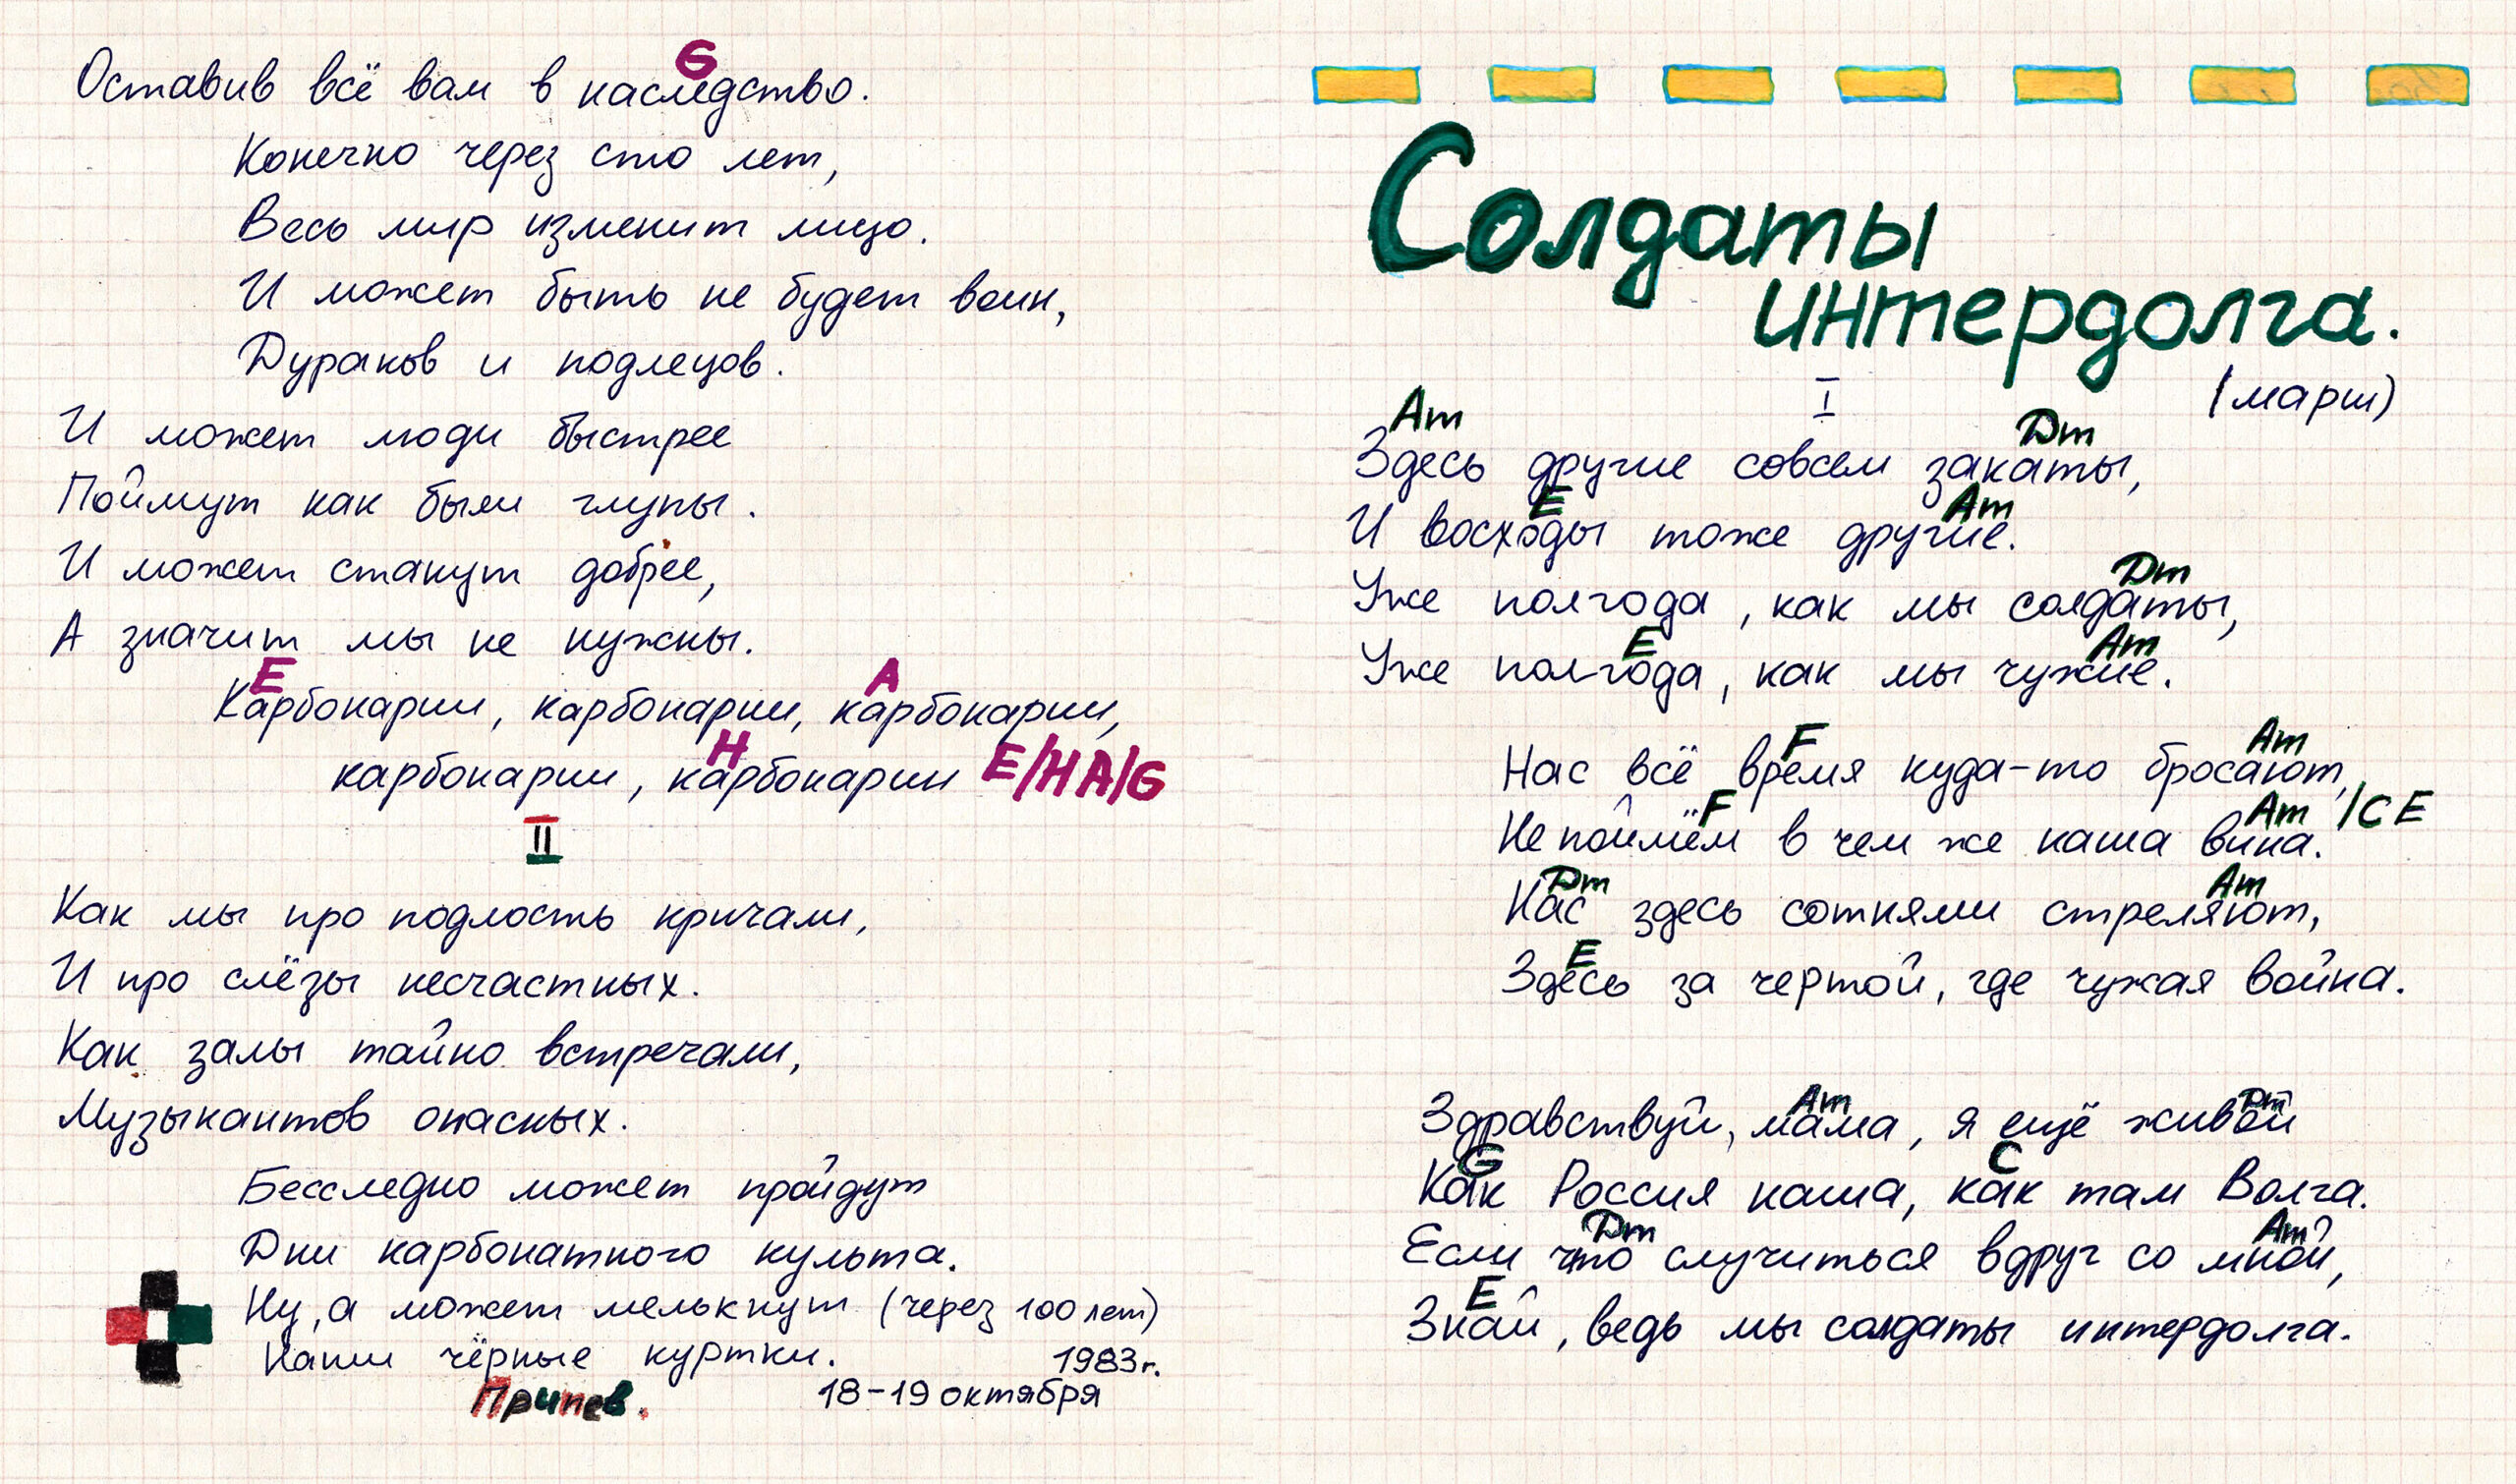 G
Оставив всё вам в наследство.
Конечно через сто лет,
Весь мир изменит лицо.
И может быть не будет воин,
Дураков и подлецов.
И может люди быстрее
Поймут как были глупы.
И может станут добрее,
А значит мы не нужны.
E A
Карбонарии, карбонарии, карбонарии,
H
карбонарии, карбонарии E/HA/G
II
Как мы про подлость кричали,
И про слёзы несчастных.
Как залы тайно встречали,
Музыкантов опасных.
Бесследно может пройдут
Дни карбонатного культа.
Ну, а может мелькнут (через 100 лет)
Наши чёрные куртки.
1983г.
Припев.
18-19 октября
Солдаты
интердолга.
I
(марш)
Am Dm
Здесь другие совсем закаты,
E Am
И восходы тоже другие.
Dm
Уже полгода, как мы солдаты,
E Am
Уже полгода, как мы чужие.
F Am
Нас всё время куда-то бросают,
F Am /C E
Не поймём в чем же наша вина.
Dm Am
Нас здесь сотнями стреляют,
E
Здесь за чертой, где чужая война.
Am Dm
Здравствуй, мама, я ещё живой
G C
Как Россия наша, как там Волга.
Dm Am
Если что случиться вдруг со мной,
E
Знай, ведь мы солдаты интердолга.